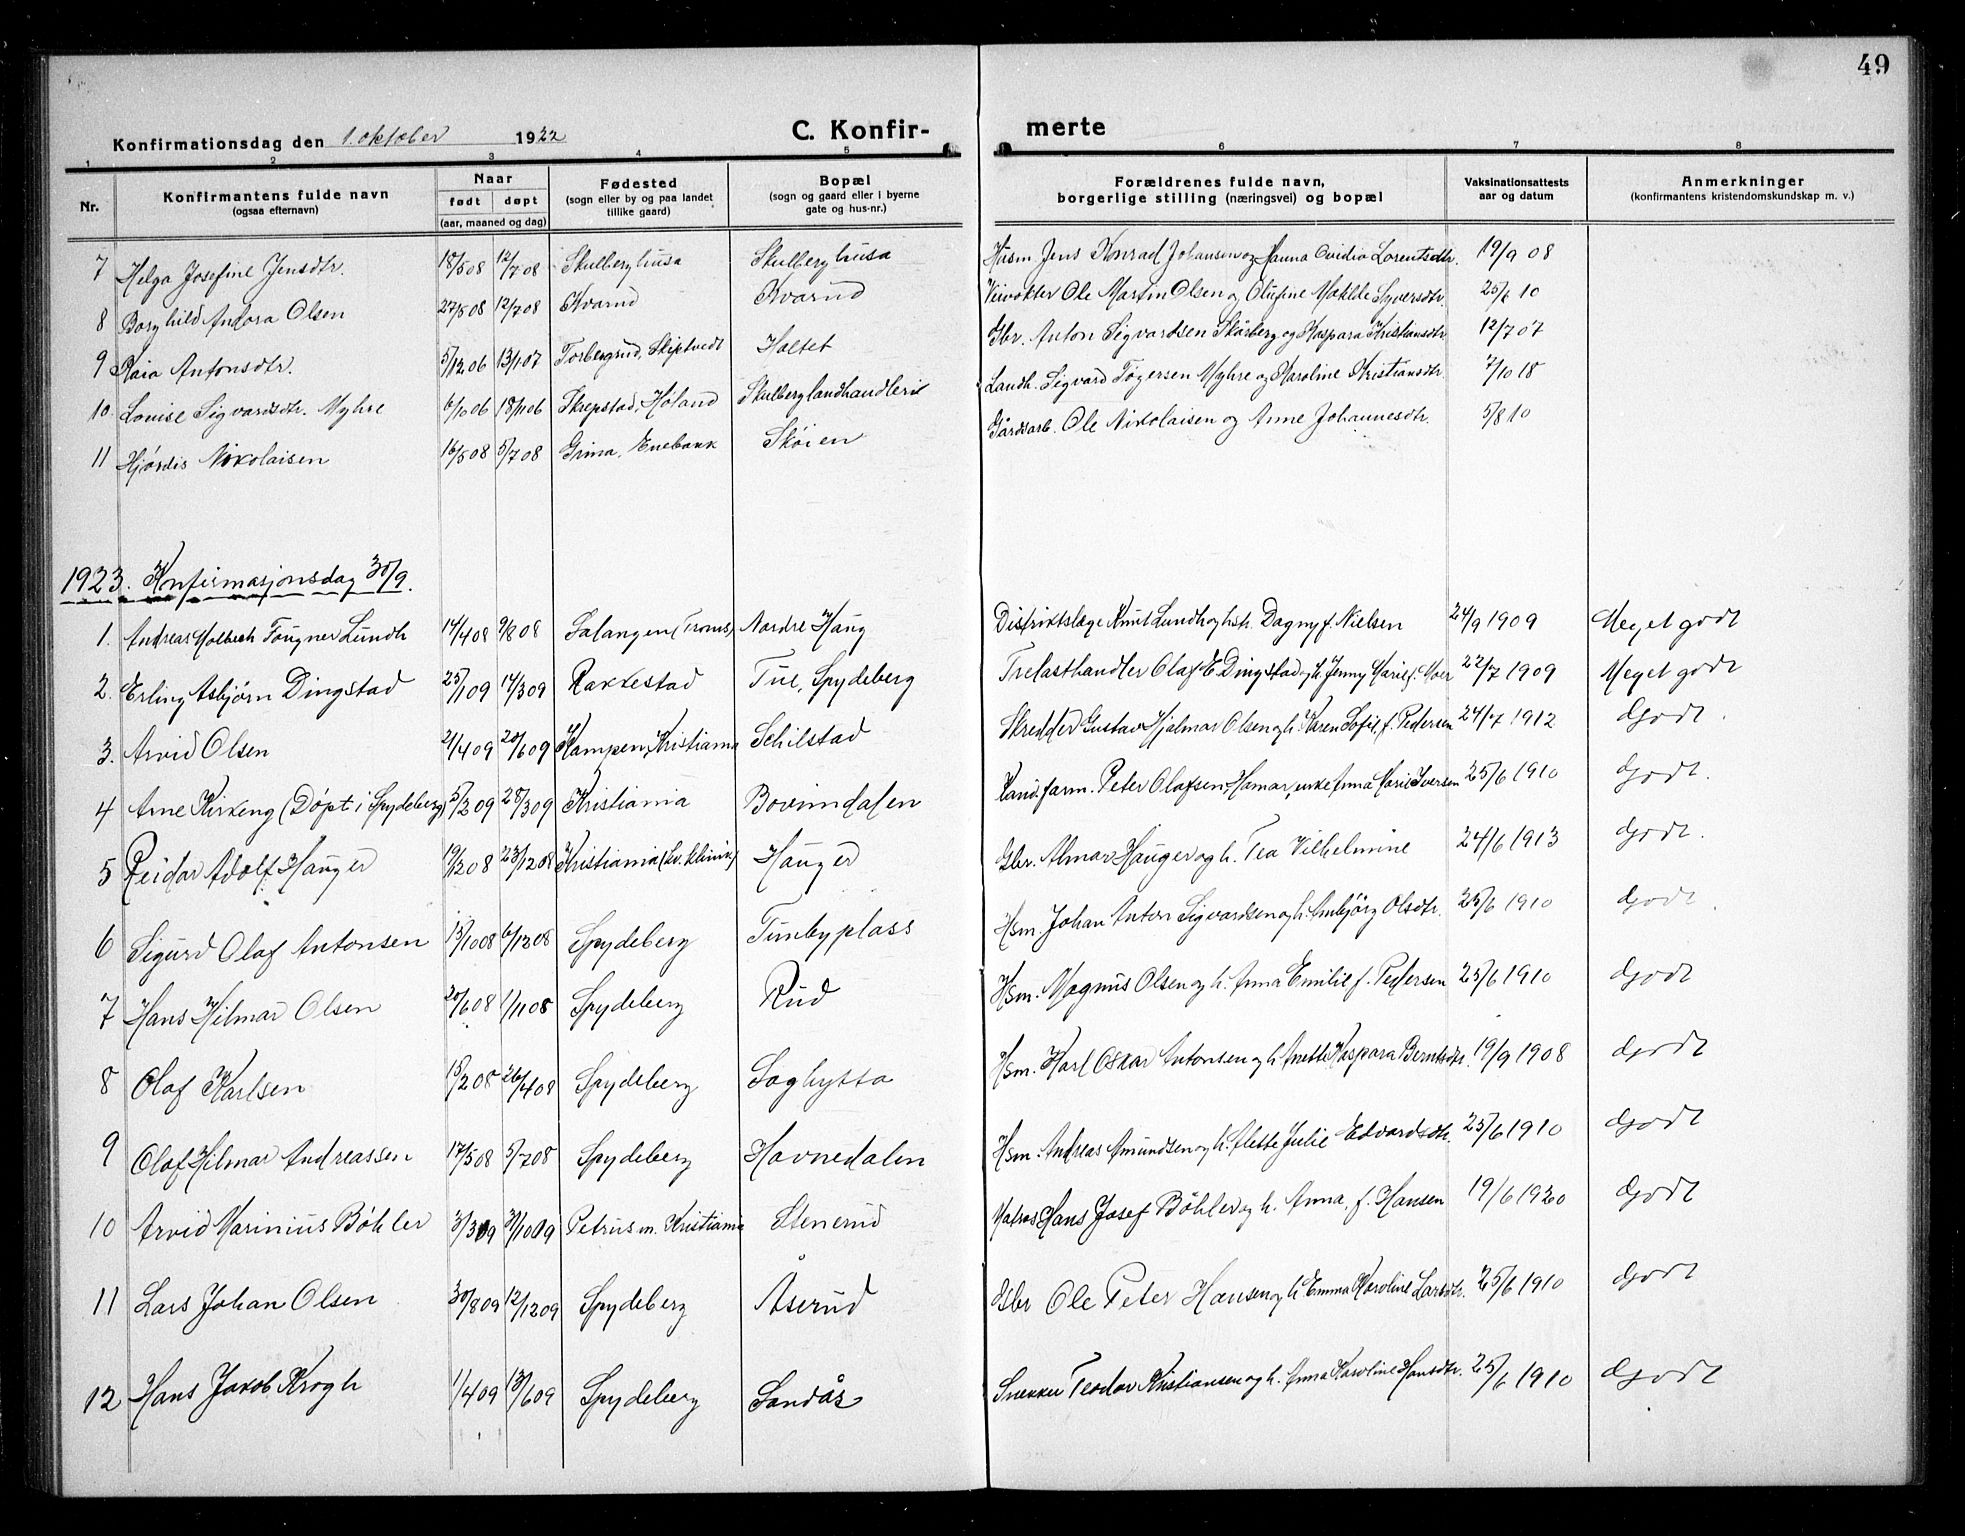 49
Konfirmationsdag den 1. oktober 1922 C. Konfir- merte
1 2 3 4 5 6 7 8
Nr. Konfirmantens fulde navn (ogsaa efternavn) Naar født døpt (aar, maaned og dag) Fødested (sogn eller by og paa landet tillike gaard) Bopæl (sogn og gaard eller i byerne gate og hus-nr.) Forældrenes fulde navn, borgerlige stilling (næringsvei) og bopæl Vaksinationsattests aar og datum Anmerkninger (konfirmantens kristendomskundskap m. v.)
7 Helga Josefine Jensdtr. 18/5 08 12/7 08 Skulberghusa Skulberghusa Husm. Jens Konrad Johansen og Hanna Ovidia Lorentsdtr. 19/9 08
8 Borghild Andora Olsen 27/5 08 12/7 08 Kvarud Kvarud Veivokter Ole Martin Olsen og Olufine Matilde Syversdtr. 25/6 10
9 Raia Antonsdtr. 5/12 06 13/1 07 Torbergsrud, Skiptvedt Holtet Gbr. Anton Sigvardsen Skårberg og Kaspara Kristiansdtr. 12/7 07
10. Louise Sigvardsdtr. Myhre 6/10 06 18/11 06 Skrepstad, Høland Skulberg landhandleri Landh. Sigvard Tøgersen Myhre og Karoline Kristiansdtr. 7/10 18
11 Hjørdis Nikolaisen 16/5 08 5/7 08 Grina, Enebakk Skøien Gårdsarb. Ole Nikolaisen og Anne Johannesdtr. 5/8 10
1923. Konfirmasjonsdag 30/9.
1. Andreas Holbech Tougner Lundh 14/4 08 9/8 08 Salangen (Troms) Nordre Haug Distriktslæge Knut Lundh og hstr. Dagny f. Nielsen 24/9 1909 Meget godt
2. Erling Asbjørn Dingstad 25/1 09 14/3 09 Rakkestad Tue, Spydeberg Trelasthandler Olaf E Dingstad og h. Jenny Marie f. Moer 22/7 1909 Meget godt
3. Arvid Olsen 21/4 09 20/6 09 Kampen, Kristiania Schilstad Skredder Gustav Hjalmar Olsen og h. Karen Sofie f. Pedersen 24/7 1912 Godt.
4 Arne Kirkeng (Døpt i Spydeberg) 5/2 09 28/3 09 Kristiania Bovimdalen Kand. farm. Peter Olafsen, Hamar, enke Anna Marie Iversen 25/6 1910 Godt.
5 Reidar Adolf Hauger 19/2 08 23/12 08 Kristiania (kv. klinik) Hauger Gbr. Almar Hauger og h. Tea Vilhelmine 24/6 1913 Godt.
6 Sigurd Olaf Antonsen 15/10 08 6/12 08 Spydeberg Timbyplass Hsm. Johan Anton Sigvardsen og h. Anbjørg Olsdtr. 25/6 1910 Godt.
7 Hans Hilmar Olsen 20/6 08 1/11 08 Spydeberg Rud Hsm. Magnus Olsen og h. Anna Emilie f. Pedersen 25/6 1910 Godt
8 Olaf Karlsen 15/2 08 26/4 08 Spydeberg Saghytta Hsm. Karl Oskar Antonsen og h. Anette Kaspara Berntsdtr. 19/9 1908 Godt
9 Olaf Hilmar Andreassen 17/5 08 5/7 08 Spydeberg Havnedalen Hsm. Andreas Amundsen og h. Alette Julie Edvardsdtr. 25/6 1910 Godt
10 Arvid Marinius Bøhler 3/3 09 31/10 09 Petrus m. Kristiania Stenerud Matros Hans Josef Bøhler og h. Anna, f. Hansen 19/6 1920 Godt
11 Lars Johan Olsen 30/8 09 12/12 09 Spydeberg Åserud Gbr Ole Peter Hansen og h. Emma Karoline Larsdtr. 25/6 1910 Godt
12 Hans Jakob Krogh 1/4 09 13/6 09 Spydeberg Sandås Snekker Teodor Kristiansen og h. Anna Karoline Hansdtr. 25/6 1910 Godt